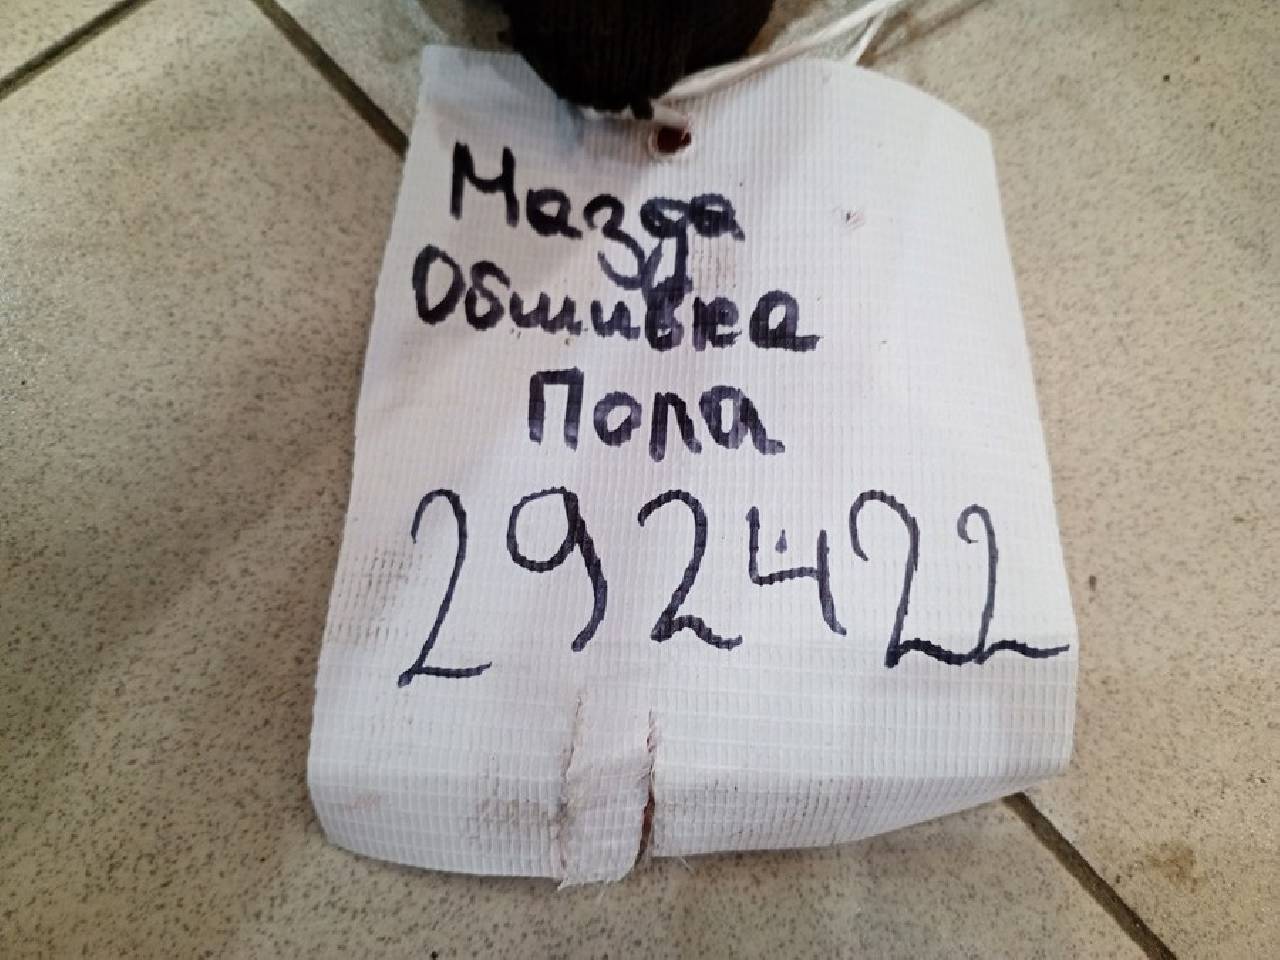 Мазда
Обшивка
Пола
292422